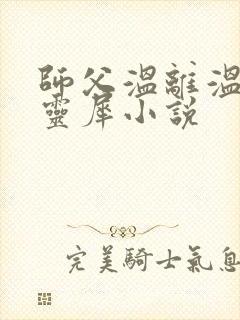 師父溫離溫
靈犀小說
完美騎士氣息